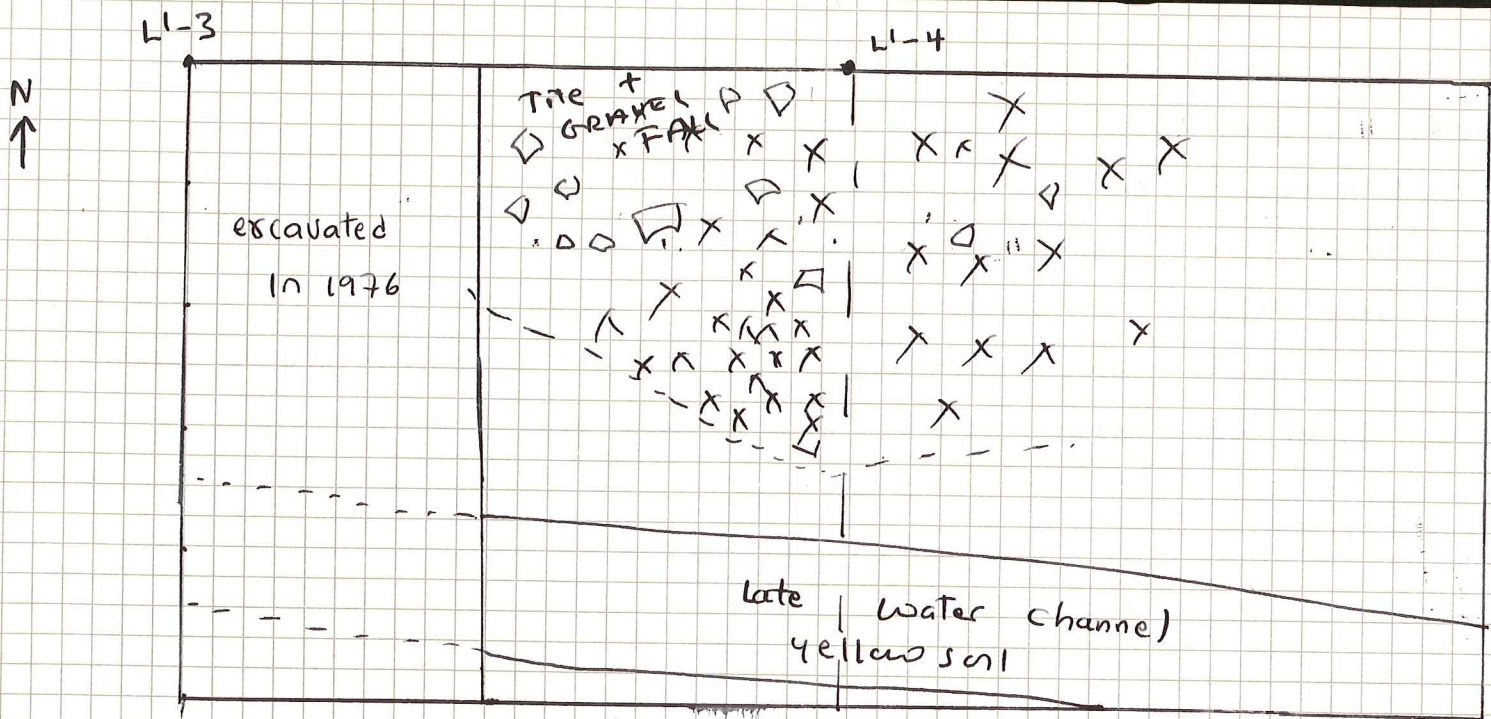 L'-3
L'-4
N
Tile +
GRAVEL
FALL
excavated
In 1976
Late water channel
yellow soil